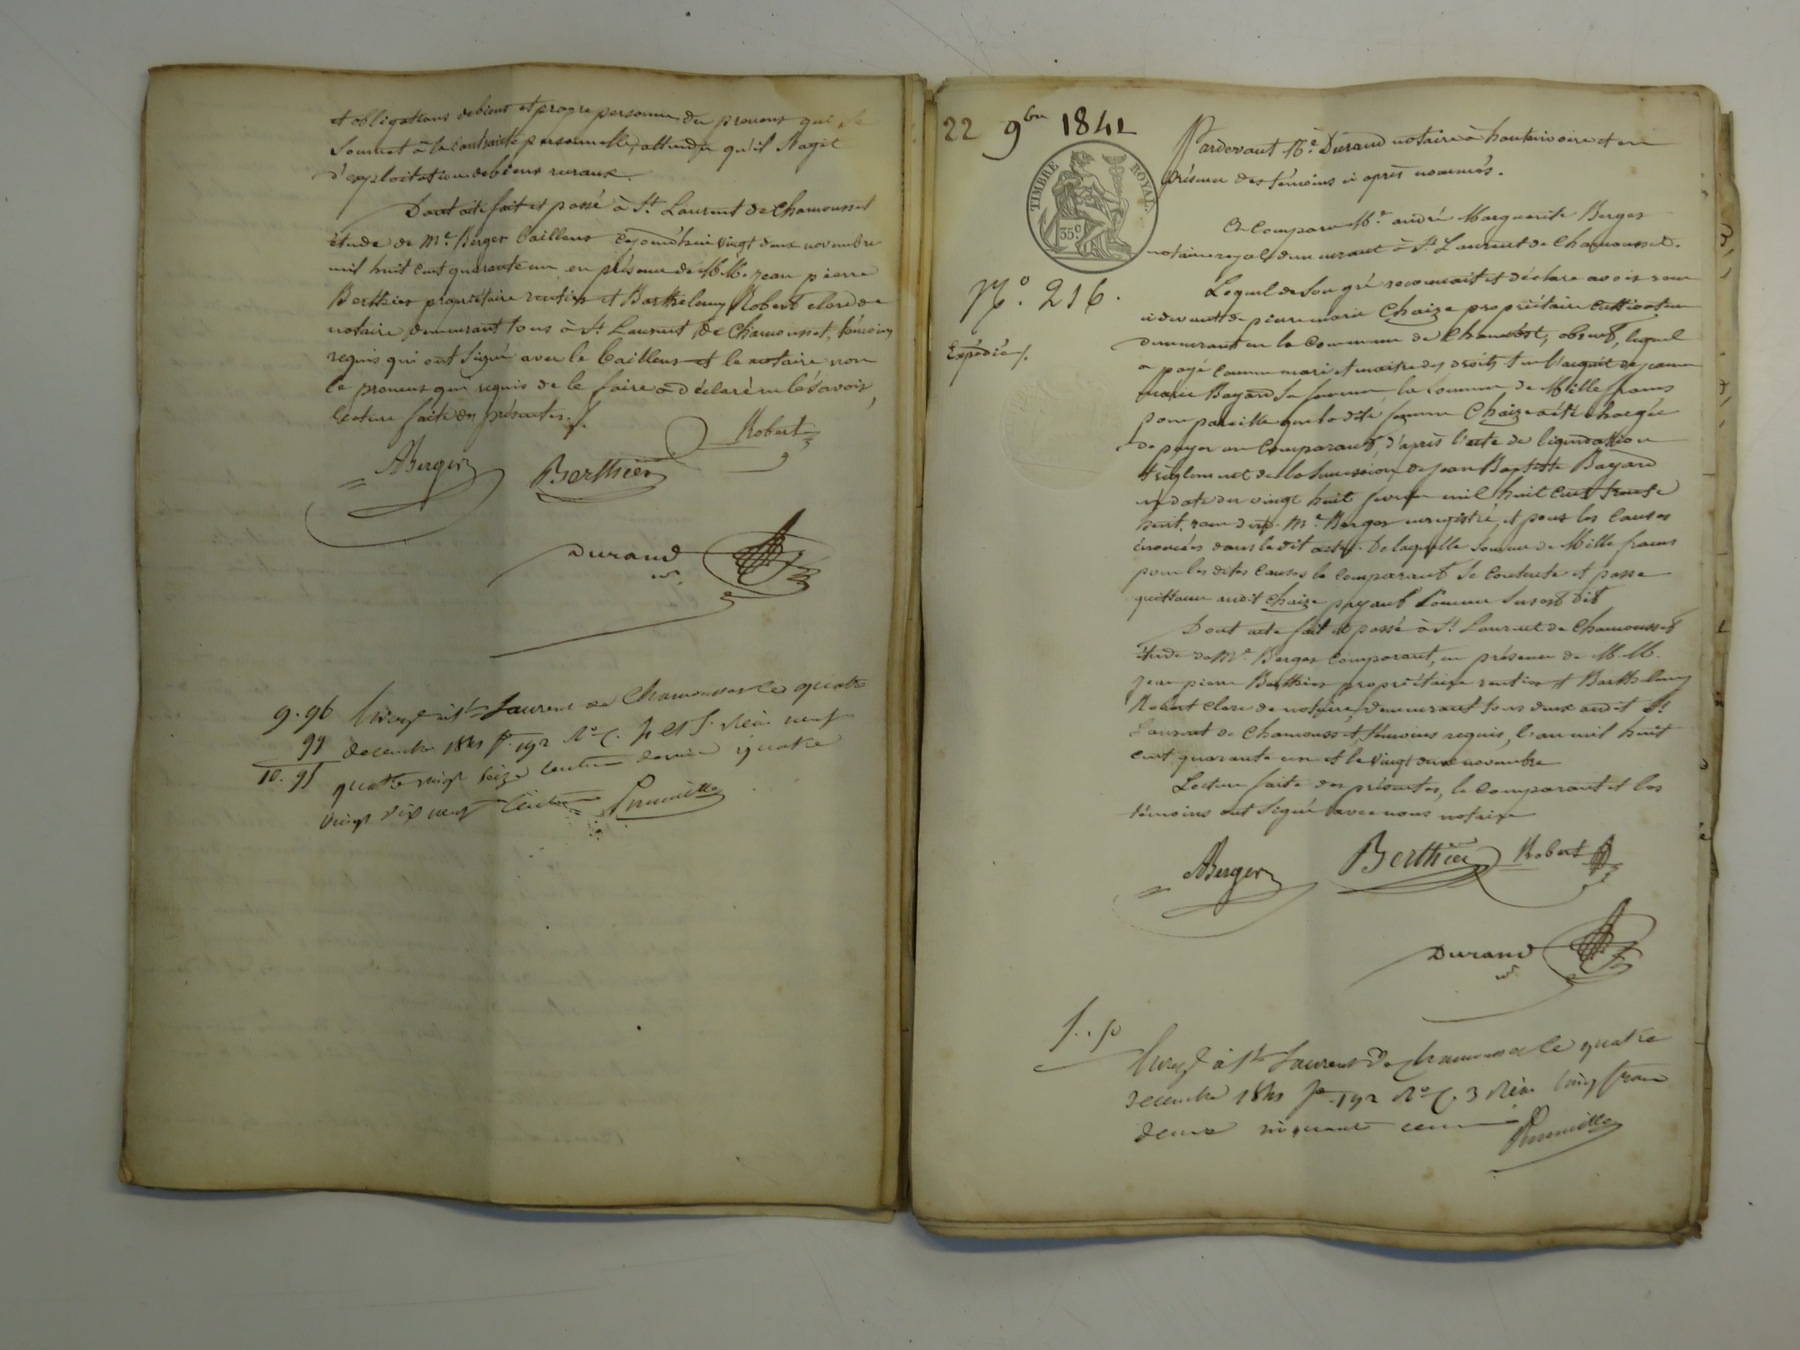 et obligations de biens et propre personne du preneur qui se
soumet à la contrainte personnelle, attendu qu'il s'agit
d'exploitation de biens ruraux.
Dont acte fait et passé à St. Laurent de Chamousset
étude de Me. Berger bailleur cejourd'hui vingt deux novembre
mil huit cent quarante un en présence de MM. Jean pierre
Berthier propriétaire rentier et Barthelemy Robert clerc de
notaire demeurant tous à St. Laurent de Chamousset, témoins
requis qui ont signé avec le bailleur et le notaire non
le preneur qui requis de le faire a déclaré ne le savoir,
lecture faite des présentes./.
ABerger Berthier Robert
Durand
nre
9.96 Enregé à St Laurent de Chamousset le quatre
99 decembre 1841 fo. 192 Ro C. 4 et 5. Reçu neuf
10.95 quatre vingt seize centimes decime quatre
vingt dix neuf centimes
22 9bre 1841
TIMBRE ROYAL
35c
No. 216.
Expédié/.
Pardevant Me. Durand notaire à hauterivoire et en
présence des témoins ci après nommés.
Est Comparu Me. andré Marguerite Berger
notaire royal demeurant à St Laurent de Chamousset.
Lequel de son gré reconnait et déclare avoir reçu
ci devant de pierre marie Chaize propriétaire cultivateur
demeurant en la commune de Chambost, absent, lequel
a payé comme mari et maitre des droits et en l'acquit de jeanne
marie Bayard sa femme, la somme de Mille francs
pour pareille que la dite femme Chaize a été chargée
de payer au comparant, d'après l'acte de liquidation
et règlement de la succession de Jean Baptiste Bayard
en date du vingt huit fevrier mil huit cent trente
huit, reçu dud. Me. Berger enregistré, et pour les causes
énoncées dans le dit acte. De laquelle somme de Mille francs
pour les dites causes le comparant se contente et passe
quittance audit Chaize payant comme sus est dit
Dont acte fait et passé à St. Laurent de Chamousset
étude de Me. Berger comparant, en présence de M.M.
Jean pierre Berthier propriétaire rentier et Barthelemy
Robert Clerc de notaire, demeurant tous deux audit St
Laurent de Chamousset, témoins requis, l'an mil huit
cent quarante un et le vingt deux novembre
Lecture faite des présentes, le comparant et les
témoins ont signé avec nous notaire
ABerger Berthier Robert
Durand
nre
5.50
Enregé à St Laurent de Chamousset le quatre
decembre 1841 fo. 192 Ro C. 3 Reçu cinq francs
decime cinquante centimes